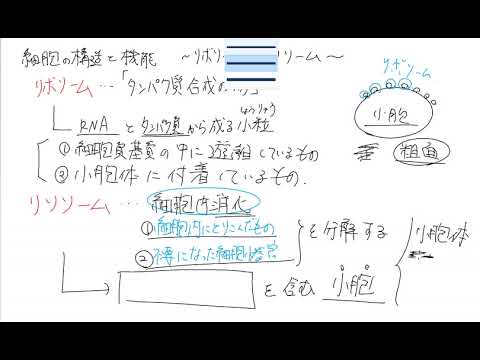 細胞の構造と機能 〜リボソーム〜
リボソーム…「タンパク質合成の
リボソーム
小胞
粗面
しょうりゅう
RNAとタンパク質から成る小粒
①細胞質基質の中に遊離しているもの
②小胞体に付着しているもの.
リソソーム…細胞内消化
①細胞内にとりこんだもの
②不要になった細胞小器官
を分解する
小胞体
を含む 小胞